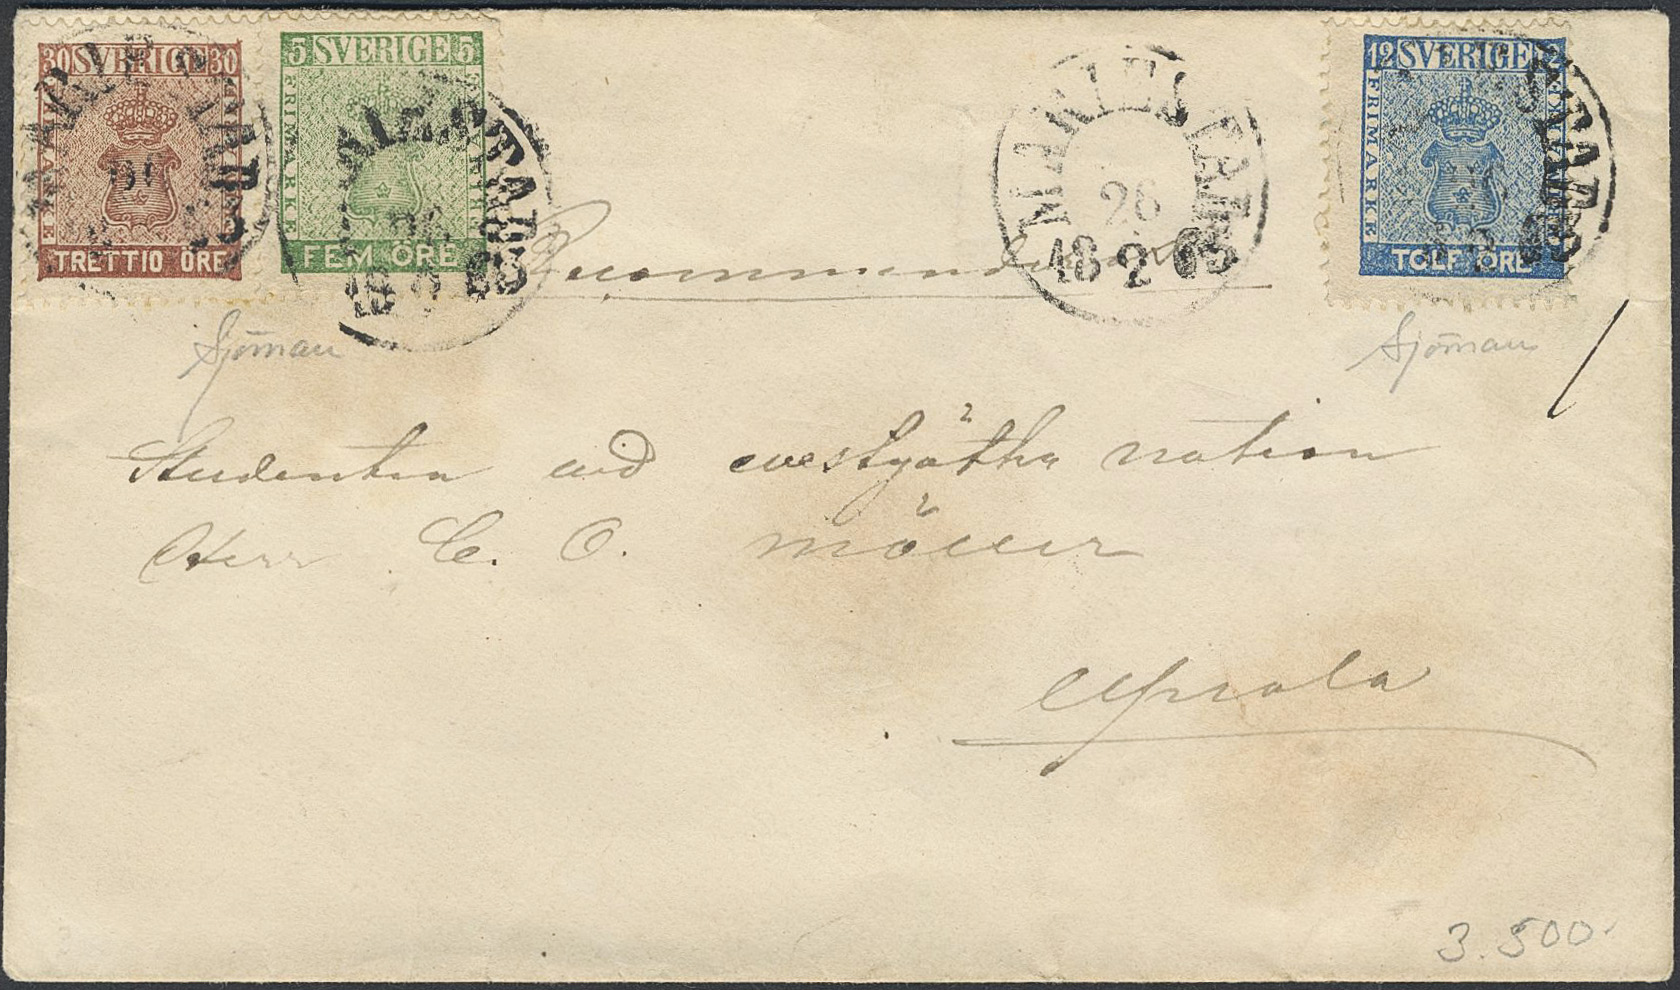 30 SVERIGE 30
FRIMÄRKE
TRETTIO ÖRE
5 SVERIGE 5
FRIMÄRKE FRIMÄRKE
FEM ÖRE
MARIESTAD
26
18 2 65
12 SVERIGE 12
FRIMÄRKE
TOLF ÖRE
Recommenderas
Sjöman
Sjöman
Studenten vid westgötha nation
Herr C. O. Möller
Upsala
3.500.